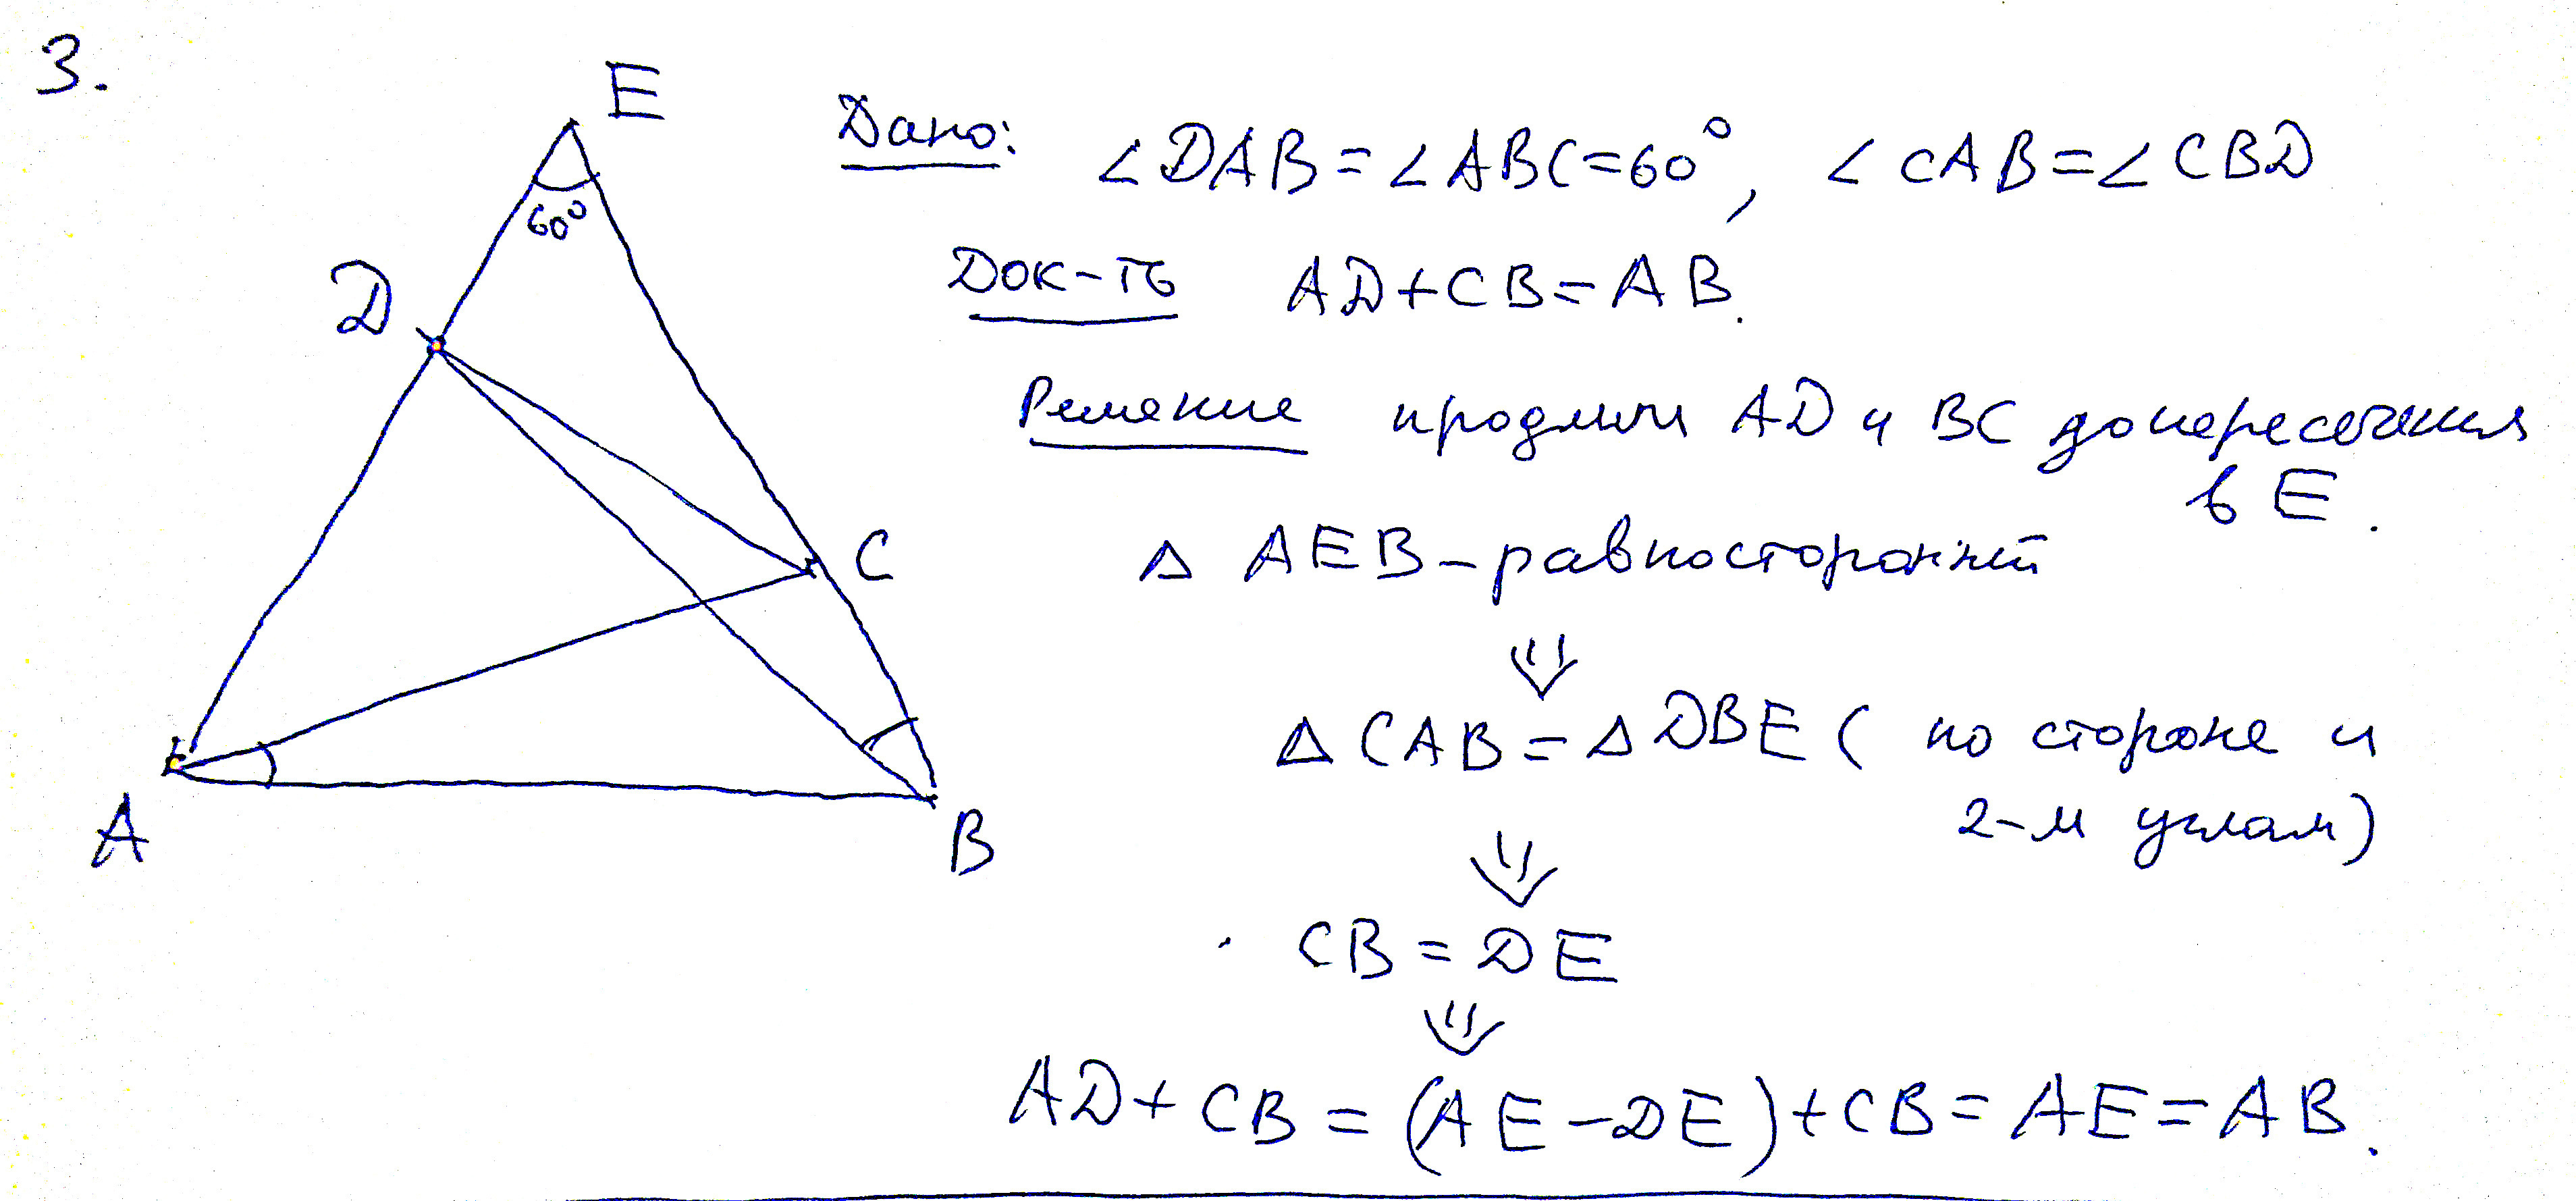 3.
E
60°
D
C
A
B
Дано: ∠DAB = ∠ABC = 60°, ∠CAB = ∠CBD
Док-ть AD + CB = AB.
Решение продлим AD и BC до пересечения
в E.
△ AEB – равносторонний
⇓
△ CAB = △ DBE ( по стороне и
2-м углам)
⇓
CB = DE
⇓
AD + CB = (AE – DE) + CB = AE = AB.